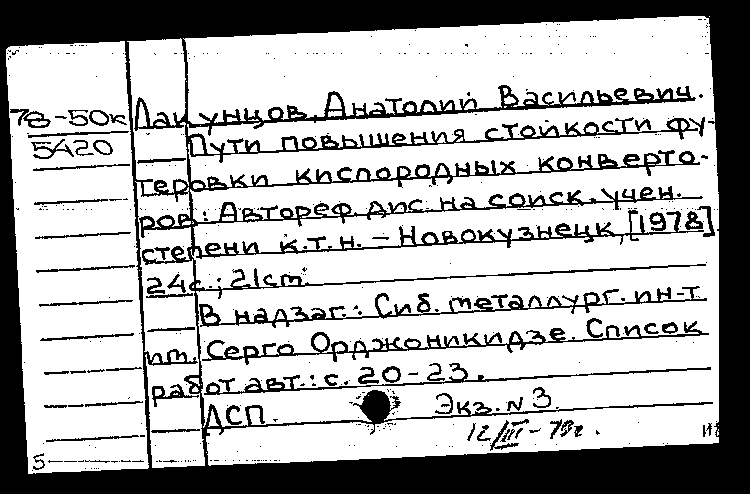 78-50к Лакунцов, Анатолий Васильевич.
5420 Пути повышения стойкости фу-
теровки кислородных конверто-
ров: Автореф. дис. на соиск. учен.
степени к.т.н. – Новокузнецк, [1978]
24с.; 21cm.
В надзаг.: Сиб. металлург. ин-т
им. Серго Орджоникидзе. Список
работ авт.: с. 20-23.
ДСП. Экз. N 3
12/III-79г.
5